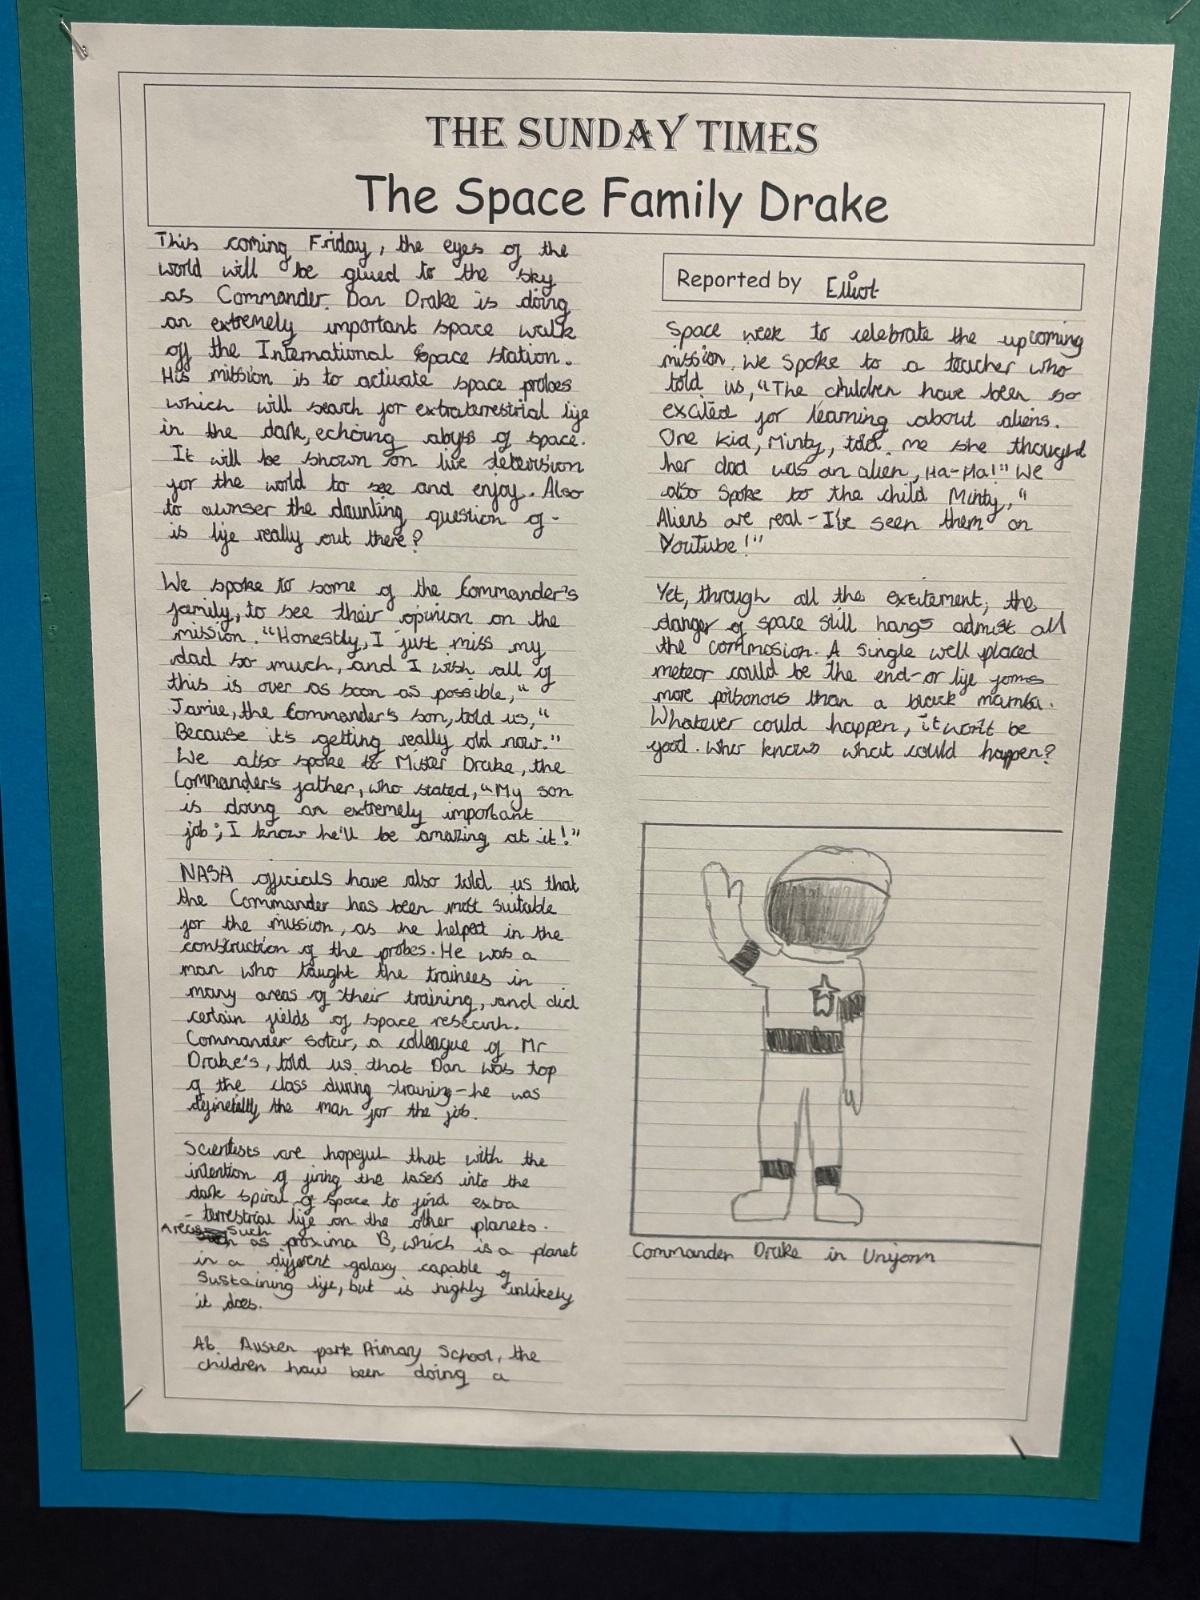 THE SUNDAY TIMES
The Space Family Drake
This coming Friday, the eyes of the
world will be glued to the sky
as Commander Dan Drake is doing
an extremely important space walk
off the International Space Station.
His mission is to activate space probes
which will search for extraterrestrial life
in the dark, echoing abyss of space.
It will be shown on live television
for the world to see and enjoy. Also
to awnser the daunting question of -
is life really out there?
We spoke to some of the Commander's
family, to see their opinion on the
mission. "Honestly, I just miss my
dad so much, and I wish all of
this is over as soon as possible,"
Jamie, the Commander's son, told us, "
Because it's getting really old now."
We also spoke to Mister Drake, the
Commander's father, who stated, "My son
is doing an extremely important
job; I know he'll be amazing at it!"
NASA officials have also told us that
the Commander has been most suitable
for the mission, as he helped in the
construction of the probes. He was a
man who taught the trainees in
many areas of their training, and did
certain fields of space research.
Commander Sotur, a colleague of Mr
Drake's, told us that Dan was top
of the class during training - he was
definetally the man for the job.
Scientists are hopeful that with the
intention of firing the lasers into the
dark spiral of space to find extra
- terrestrial life on the other planets.
Areas such
as proxima B, which is a planet
in a different galaxy capable of
sustaining life, but is highly unlikely
it does.
At Austen park Primary School, the
children have been doing a
Reported by Elliot
Space week to celebrate the upcoming
mission. We spoke to a teacher who
told us, "The children have been so
excited for learning about aliens.
One kid, Minty, told me she thought
her dad was an alien, Ha-Ha!" We
also spoke to the child Minty, "
Aliens are real - I've seen them on
YouTube!"
Yet, through all the excitement, the
danger of space still hangs admist all
the commosion. A single well placed
meteor could be the end - or life forms
more poisonous than a black mamba.
Whatever could happen, it won't be
good. Who knows what could happen?
Commander Drake in Uniform